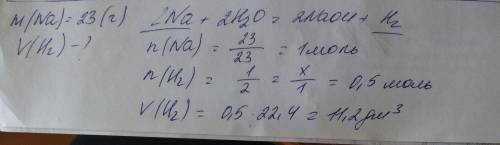 m(Na)=23(г)  2Na + 2H₂O = 2NaOH + H₂
V(H₂)-?  n(Na) = 23/23 = 1 моль
n(H₂) = 1/2 = x/1 = 0,5 моль
V(H₂) = 0,5 · 22,4 = 11,2 дм³